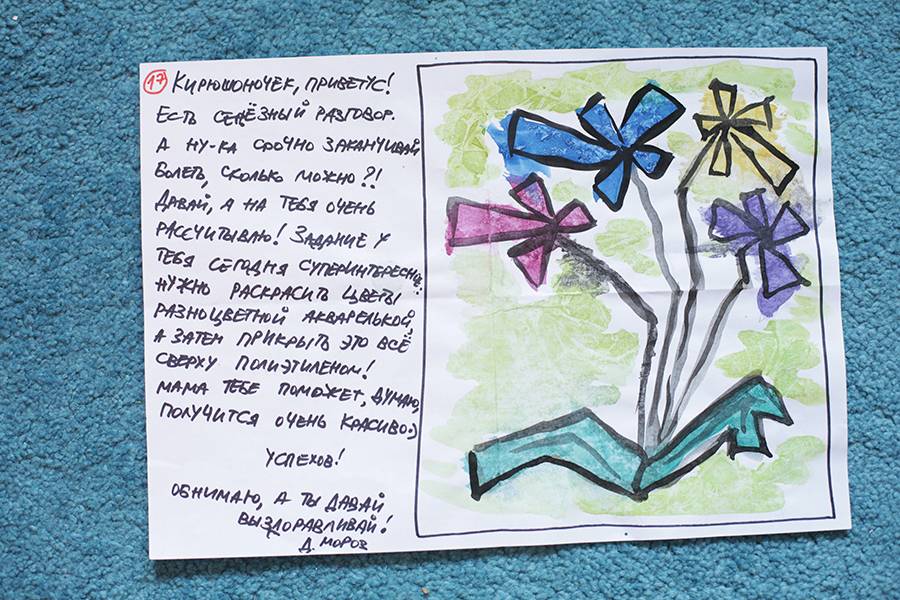 17 Кирюшоночек, приветус!
Есть сецёзный разговор.
А ну-ка срочно заканчивай
болеть, сколько можно?!
Давай, а на тебя очень
рассчитываю! Задание у
тебя сегодня суперинтересное:
нужно раскрасить цветы
разноцветной акварелькой,
а затем прикрыть это всё
сверху полиэтиленом!
Мама тебе поможет, думаю,
получится очень красиво:)
Успехов!
Обнимаю, а ты давай
выздоравливай!
Д. Мороз